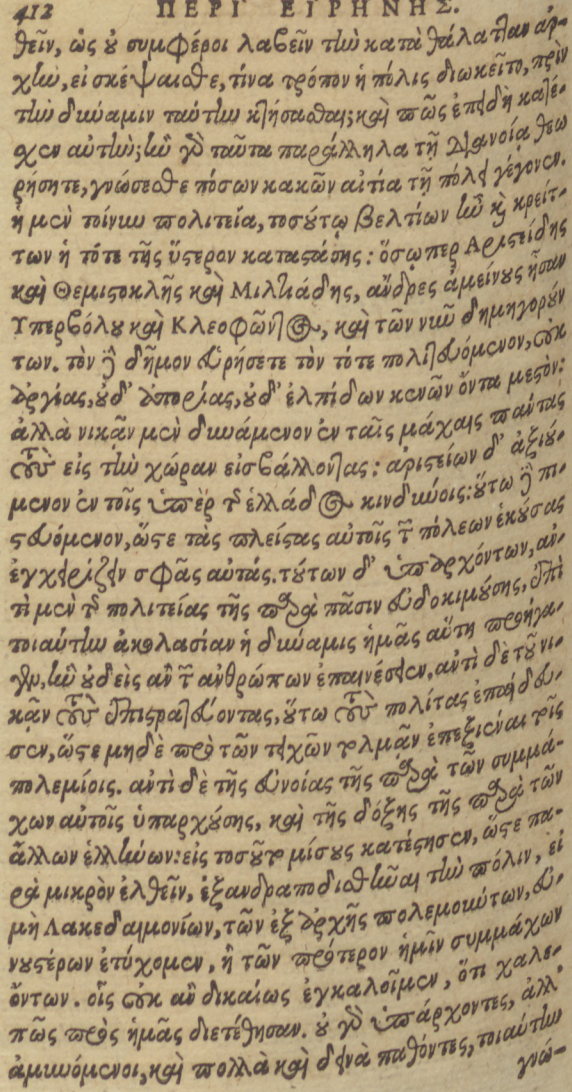 412 ΠΕΡΙ ΕΙΡΗΝΗΣ.
θεῖν, ὡς οὐ συμφέροι λαβεῖν τὴν κατὰ θάλατταν ἀρ-
χὴν, εἰ σκέψαισθε, τίνα τρόπον ἡ πόλις διωκεῖτο, πρὶν
τὴν δύναμιν ταύτην κτήσασθαι; καὶ πῶς ἐπειδὴ κατέ-
σχεν αὐτὴν; ἢν γὸ ταῦτα παράλληλα τῇ διανοίᾳ θεω
ρήσητε, γνώσεσθε πόσων κακῶν αἰτία τῇ πόλει γέγονεν.
ἡ μὲν τοίνυν πολιτεία, τοσούτῳ βελτίων ἦν καὶ κρείτ-
των ἡ τότε τῆς ὕστερον καταστάσης: ὅσῳπερ Ἀριστείδης
καὶ Θεμιστοκλῆς καὶ Μιλτιάδης, ἄνδρες ἀμείνους ἦσαν
Ὑπερβόλου καὶ Κλεοφῶντος, καὶ τῶν νῦν δημηγορούν
των. τὸν δὲ δῆμον εὑρήσετε τὸν τότε πολιτευόμενον, οὐκ
ἀργίας, οὐδ' ἀπορίας, οὐδ' ἐλπίδων κενῶν ὄντα μεστὸν:
ἀλλὰ νικᾶν μὲν δυνάμενον ἐν ταῖς μάχαις πάντας
τοὺς εἰς τὴν χώραν εἰσβάλλοντας: ἀριστείων δ' ἀξιού-
μενον ἐν τοῖς ὑπὲρ τῆς ἑλλάδος κινδύνοις: οὕτω δὲ πι-
στευόμενον, ὥστε τὰς πλείστας αὐτοῖς τῶν πόλεων ἑκούσας
ἐγχειρίζειν σφᾶς αὐτάς. τούτων δ' ὑπαρχόντων, ἀν-
τὶ μὲν τῆς πολιτείας τῆς παρὰ πᾶσιν εὐδοκιμούσης, ἐπὶ
τοιαύτην ἀκολασίαν ἡ δύναμις ἡμᾶς αὕτη προήγα-
γεν, ἣν οὐδεὶς ἂν τῶν ἀνθρώπων ἐπαινέσειεν, ἀντὶ δὲ τοῦ νι-
κᾶν τοὺς ἐπιστρατεύοντας, οὕτω τοὺς πολίτας ἐπαίδευ-
σεν, ὥστε μηδὲ πρὸ τῶν τειχῶν τολμᾶν ἐπεξιέναι τοῖς
πολεμίοις. ἀντὶ δὲ τῆς εὐνοίας τῆς παρὰ τῶν συμμά-
χων αὐτοῖς ὑπαρχούσης, καὶ τῆς δόξης τῆς παρὰ τῶν
ἄλλων ἑλλήνων: εἰς τοσοῦτο μίσους κατέστησεν, ὥστε πα-
ρὰ μικρὸν ἐλθεῖν, ἐξανδραποδισθῆναι τὴν πόλιν, εἰ
μὴ Λακεδαιμονίων, τῶν ἐξ ἀρχῆς πολεμούντων, εὐ-
νουστέρων ἐτύχομεν, ἢ τῶν πρότερον ἡμῖν συμμάχων
ὄντων. οἷς οὐκ ἂν δικαίως ἐγκαλοῖμεν, ὅτι χαλε-
πῶς πρὸς ἡμᾶς διετέθησαν. οὐ γὸ ὑπάρχοντες, ἀλλ'
ἀμυνόμενοι, καὶ πολλὰ καὶ δεινὰ παθόντες, τοιαύτην
γνώ-